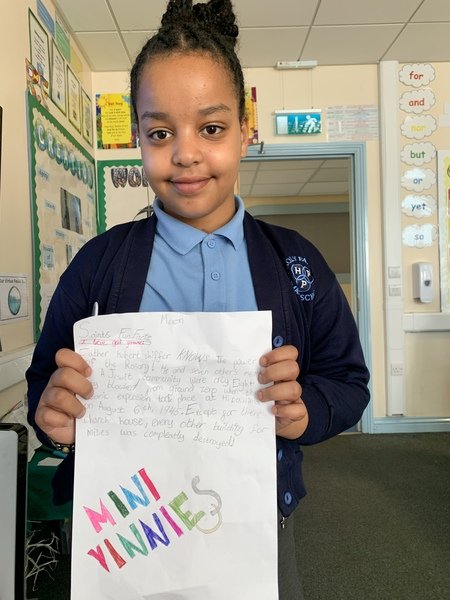 for
and
nor
but
or
yet
so
WOR
HOLY FA
H
P
SCH
Meen
Saints Fun Facts
Father Hubert shiffer KNOWS the power
of the Rosary! He and seven others
in a Jesuit Community were only Eight
blocks from ground zero when the
atomic explosion took place at Hiroshima
on August 6th, 1945. Except for their
church house, every other building for
miles was completely destroyed!
MINI
VINNIES